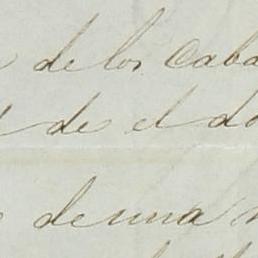 de los Caba
de el do
de una